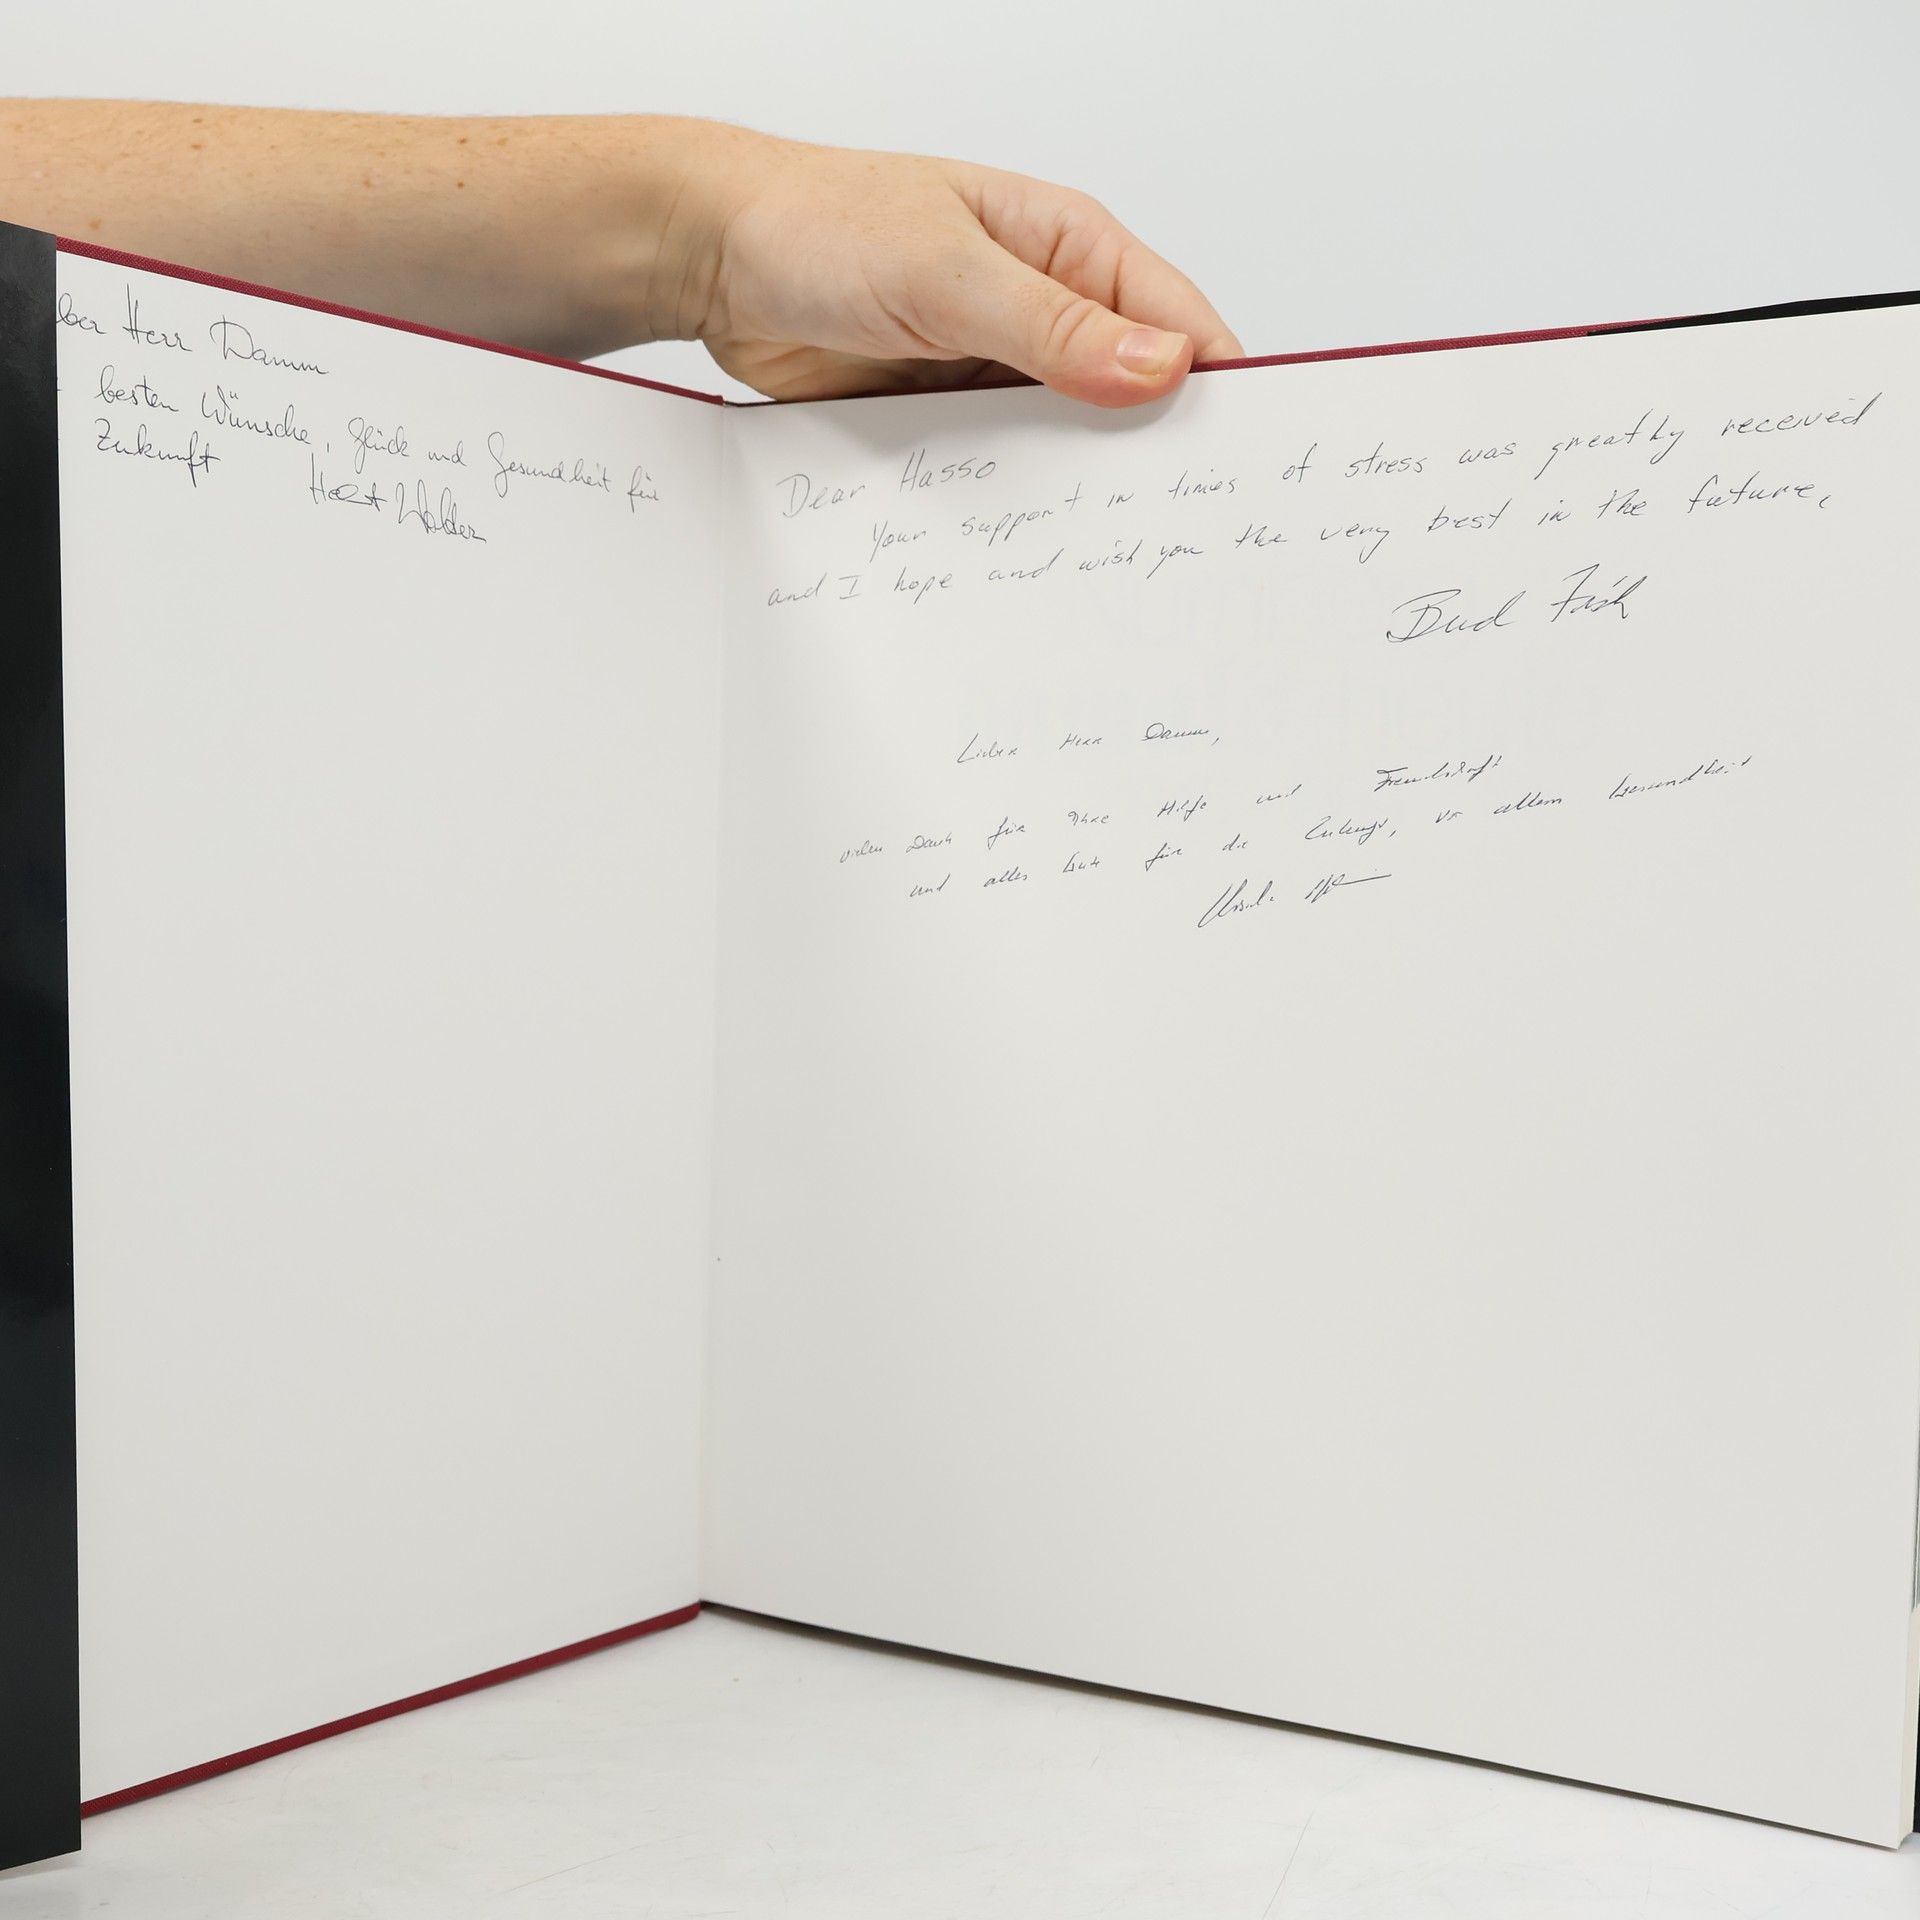 ber Herr Damm
besten Wünsche, Glück und Gesundheit für
Zukunft
Horst Wolder
Dear Hasso
Your support in times of stress was greatly received
and I hope and wish you the very best in the future,
Bud Fish
Lieber Herr Damm,
vielen Dank für Ihre Hilfe und Freundschaft
und alles Gute für die Zukunft, vor allem Gesundheit